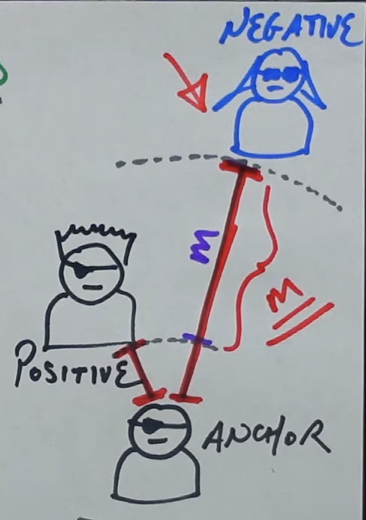 NEGATIVE
M
M
POSITIVE
ANCHOR